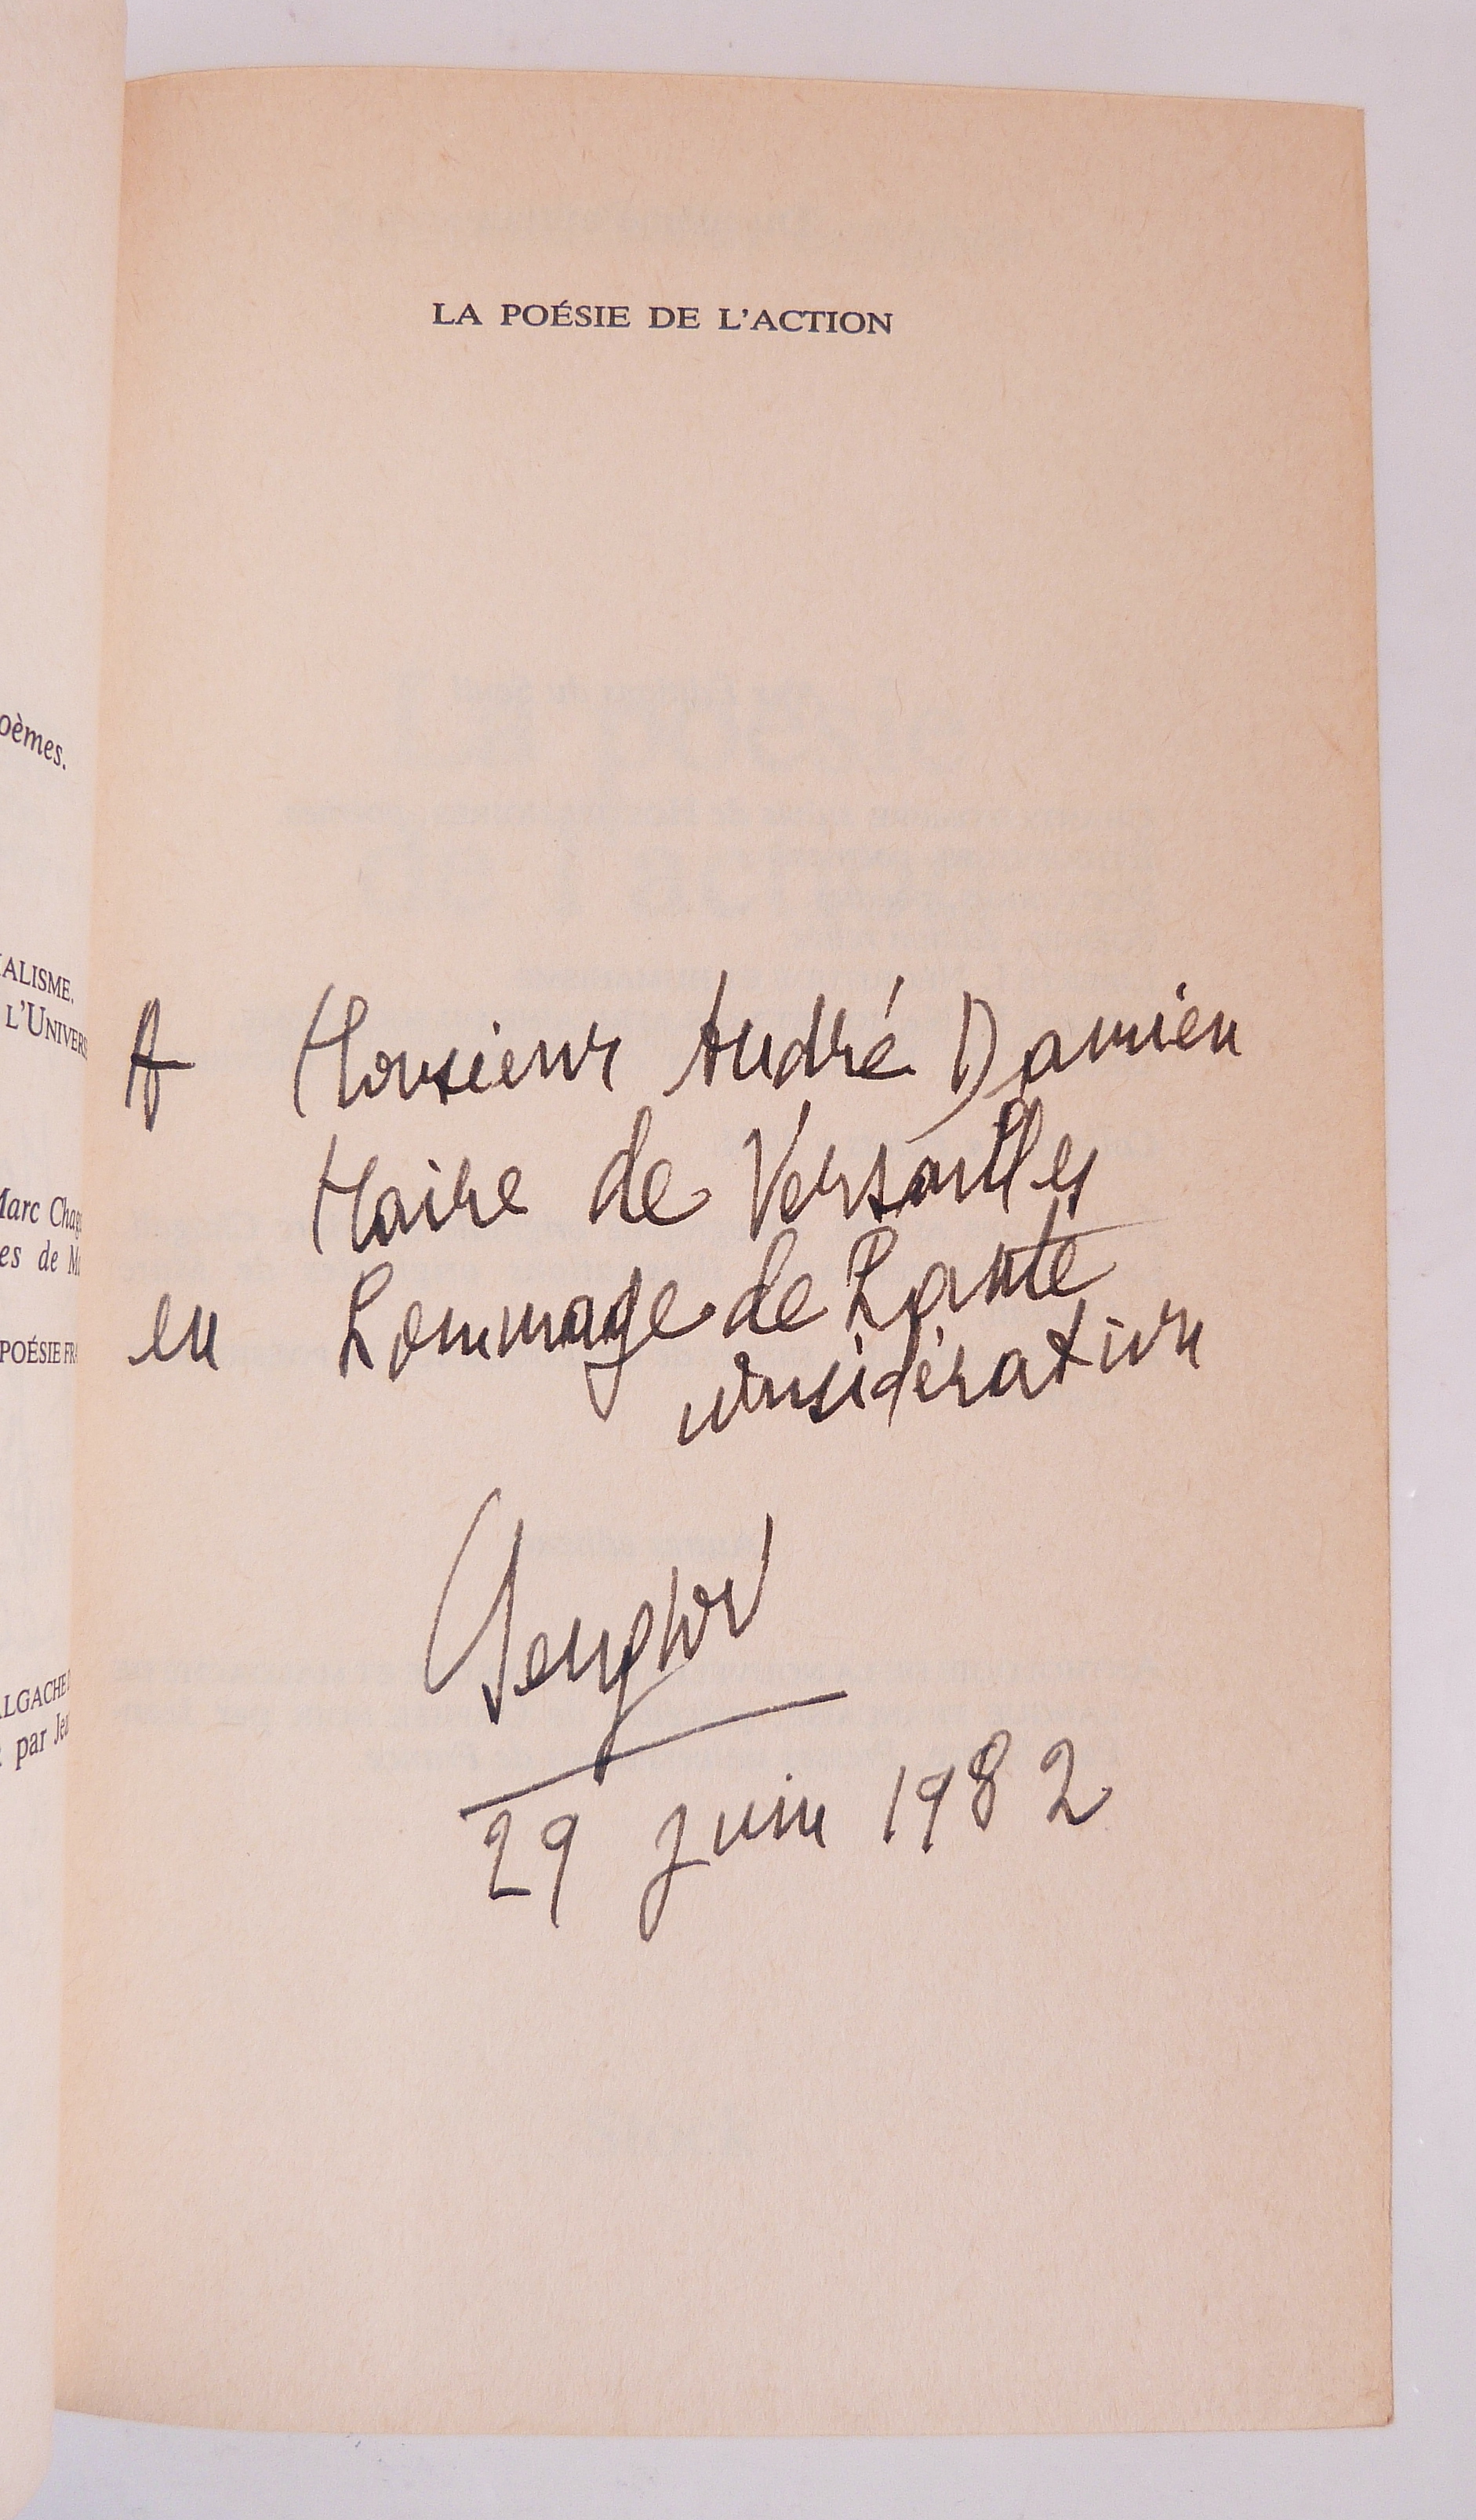 oèmes.
ALISME.
L'UNIVERS
Marc Chag
es de M
POÉSIE FR
ALGACHE
par Jea
LA POÉSIE DE L'ACTION
A Monsieur André Damien
Maire de Versailles
en hommage de haute
considération
Senghor
29 juin 1982